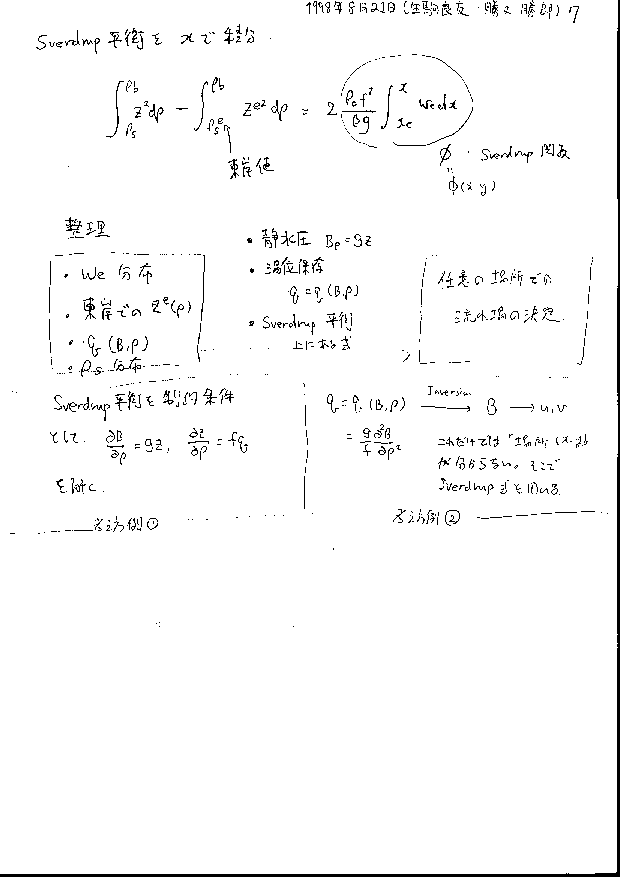 1998年8月21日 (生駒良友・勝又 勝郎) 7
Sverdrup 平衡を x で積分.
∫_{ρs}^{ρb} z² dρ − ∫_{ρs^e}^{ρb} z^{e2} dρ = 2 ρ₀f²/βg ∫_{xe}^{x} we dx
東岸値
φ ・ Sverdrup 関数
φ(x y)
整理
・ We 分布
・ 東岸での z^e(ρ)
・ q (B, ρ)
・ ρs 分布
・ 静水圧 Bρ = gz
・ 渦位保存
q = q (B, ρ)
・ Sverdrup 平衡
上にある式
任意の場所での
流れ場の決定.
Sverdrup 平衡を制約条件
として. ∂B/∂ρ = gz, ∂z/∂ρ = fq
を解く.
考え方例①
q = q (B, ρ) Inversion → B → u, v
= g/f ∂²B/∂ρ²
これだけでは「場所 (x, y)」
が分からない。そこで
Sverdrup 式を用いる
考え方例②